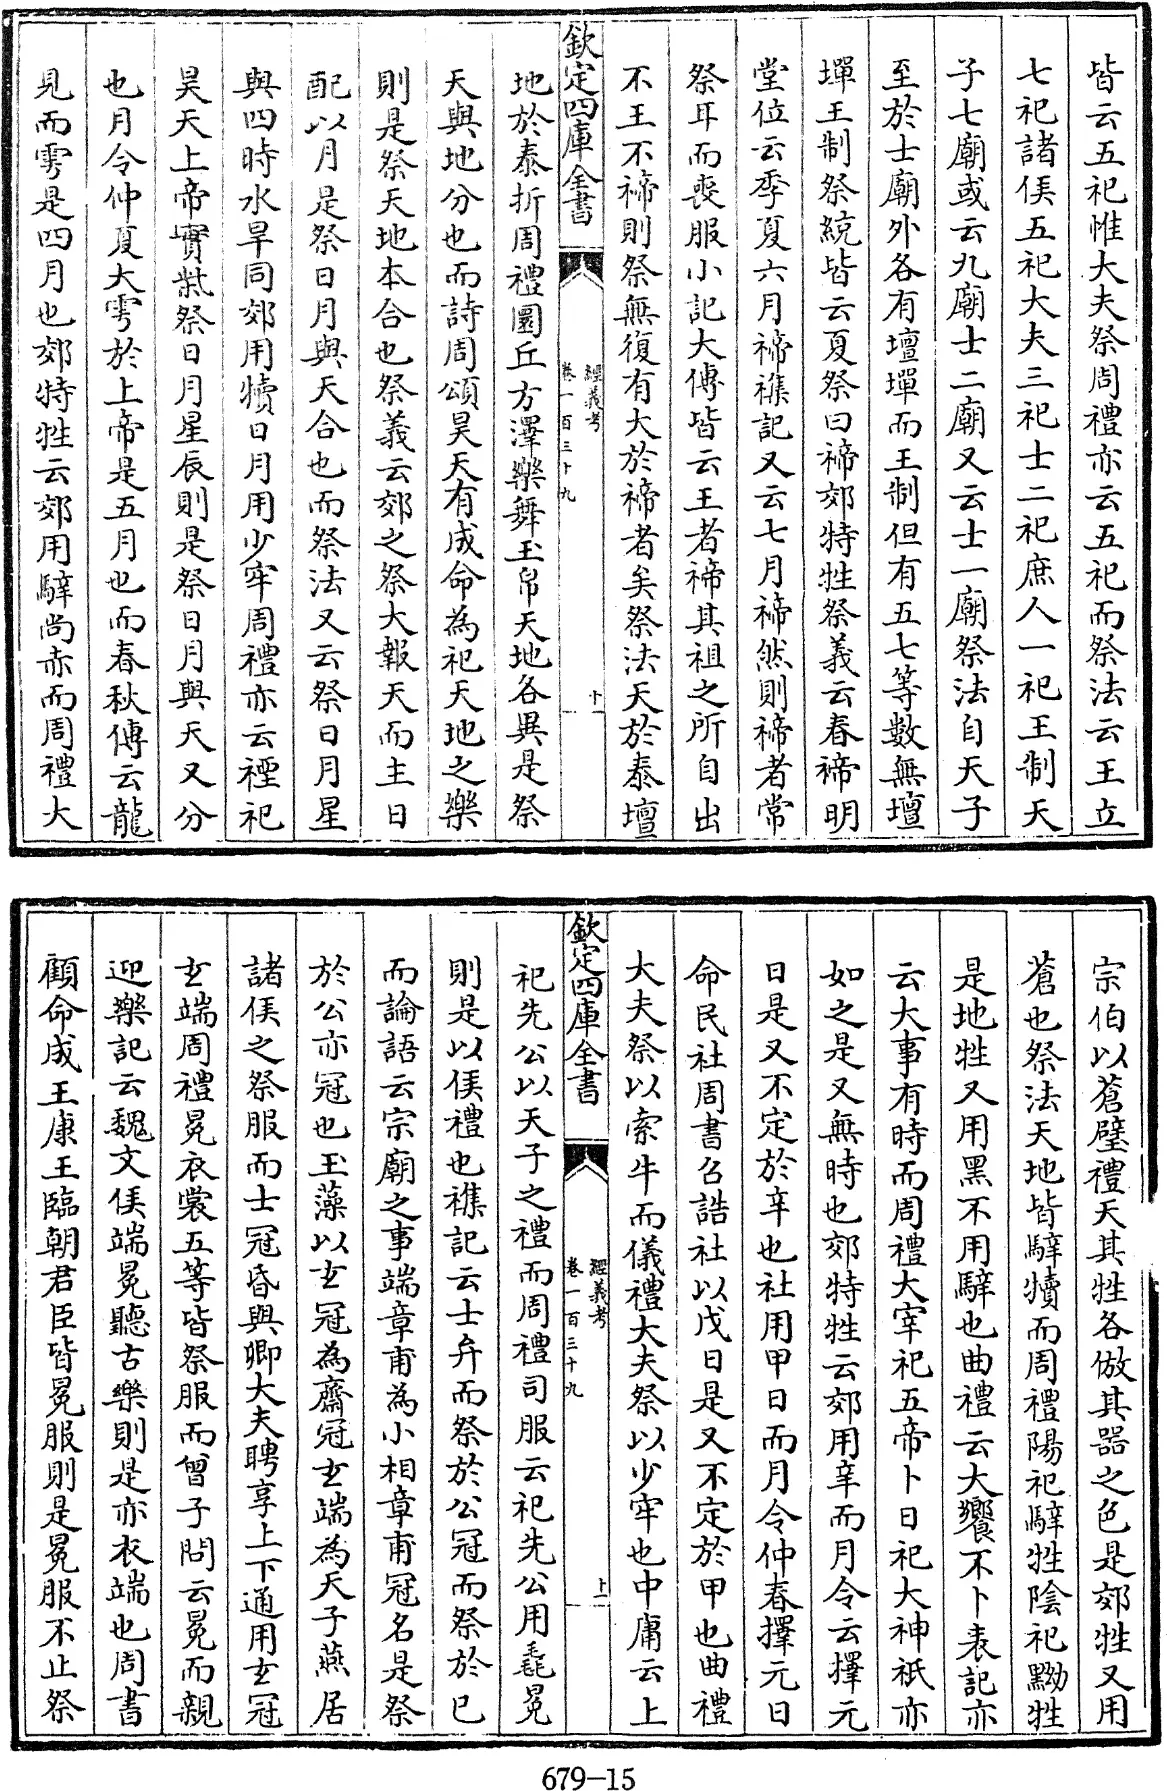 皆云五祀惟大夫祭周禮亦云五祀而祭法云王立
七祀諸侯五祀大夫三祀士二祀庶人一祀王制天
子七廟或云九廟士二廟又云士一廟祭法自天子
至於士廟外各有壇墠而王制但有五七等數無壇
墠王制祭統皆云夏祭曰禘郊特牲祭義云春禘明
堂位云季夏六月禘襍記又云七月禘然則禘者常
祭耳而喪服小記大傳皆云王者禘其祖之所自出
不王不禘則祭無復有大於禘者矣祭法天於泰壇
欽定四庫全書
經義考
卷一百三十九
十
地於泰折周禮圜丘方澤樂舞玉帛天地各異是祭
天與地分也而詩周頌昊天有成命為祀天地之樂
則是祭天地本合也祭義云郊之祭大報天而主日
配以月是祭日月與天合也而祭法又云祭日月星
與四時水旱同郊用犢日月用少牢周禮亦云禋祀
昊天上帝實柴祭日月星辰則是祭日月與天又分
也月令仲夏大雩於上帝是五月也而春秋傳云龍
見而雩是四月也郊特牲云郊用騂尚赤而周禮大
宗伯以蒼璧禮天其牲各倣其器之色是郊牲又用
蒼也祭法天地皆騂犢而周禮陽祀騂牲陰祀黝牲
是地牲又用黑不用騂也曲禮云大饗不卜表記亦
云大事有時而周禮大宰祀五帝卜日祀大神祇亦
如之是又無時也郊特牲云郊用辛而月令云擇元
日是又不定於辛也社用甲日而月令仲春擇元日
命民社周書召誥社以戊日是又不定於甲也曲禮
大夫祭以索牛而儀禮大夫祭以少牢也中庸云上
欽定四庫全書
經義考
卷一百三十九
十一
祀先公以天子之禮而周禮司服云祀先公用毳冕
則是以侯禮也襍記云士弁而祭於公冠而祭於已
而論語云宗廟之事端章甫為小相章甫冠名是祭
於公亦冠也玉藻以玄冠為齋冠玄端為天子燕居
諸侯之祭服而士冠昏與卿大夫聘享上下通用玄冠
玄端周禮冕衣裳五等皆祭服而曾子問云冕而親
迎樂記云魏文侯端冕聽古樂則是亦衣端也周書
顧命成王康王臨朝君臣皆冕服則是冕服不止祭
679-15